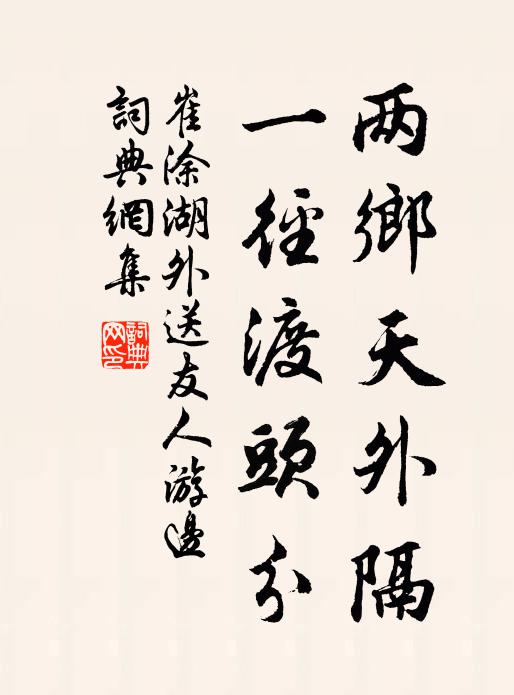 两鄉天外隔
一徑渡頭分
崔涂湖外送友人游邊
詞典網集
詞典網印